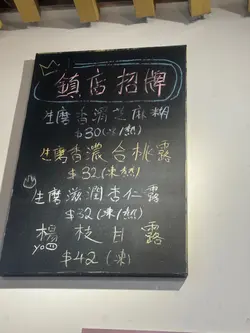 鎮店招牌
生磨香滑芝麻糊
$30(凍/熱)
生磨香濃合桃露
$32(凍/熱)
生磨滋潤杏仁露
$32(凍/熱)
楊枝甘露
$42(凍)